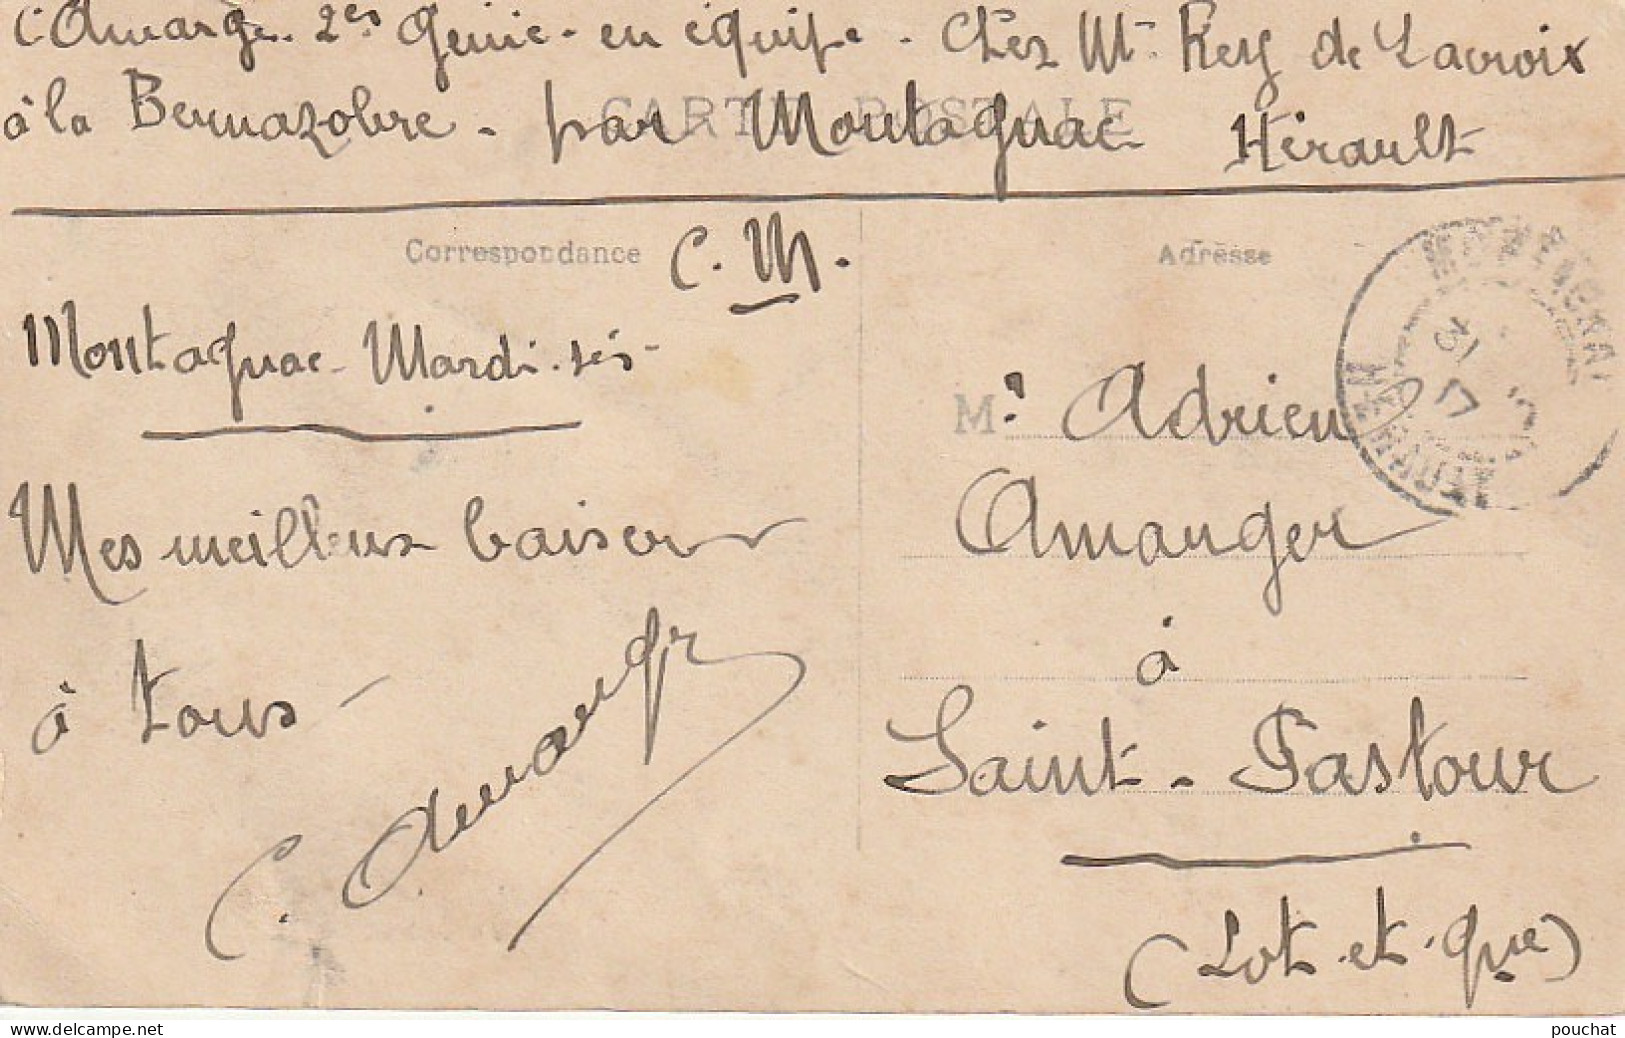 C Amange. 2es Génie - en équipe - Chez Mr Rey de Lacroix
à la Bernazobre - par Montagnac Hérault
CARTE POSTALE
Correspondance
C. M.
Montagnac - Mardi
Mes meilleurs baisers
à tous -
C. Amang
Adresse
Mr. Adrien
Amanger
à
Saint-Pastour
(Lot-et-Gne)
pouchat
www.delcampe.net